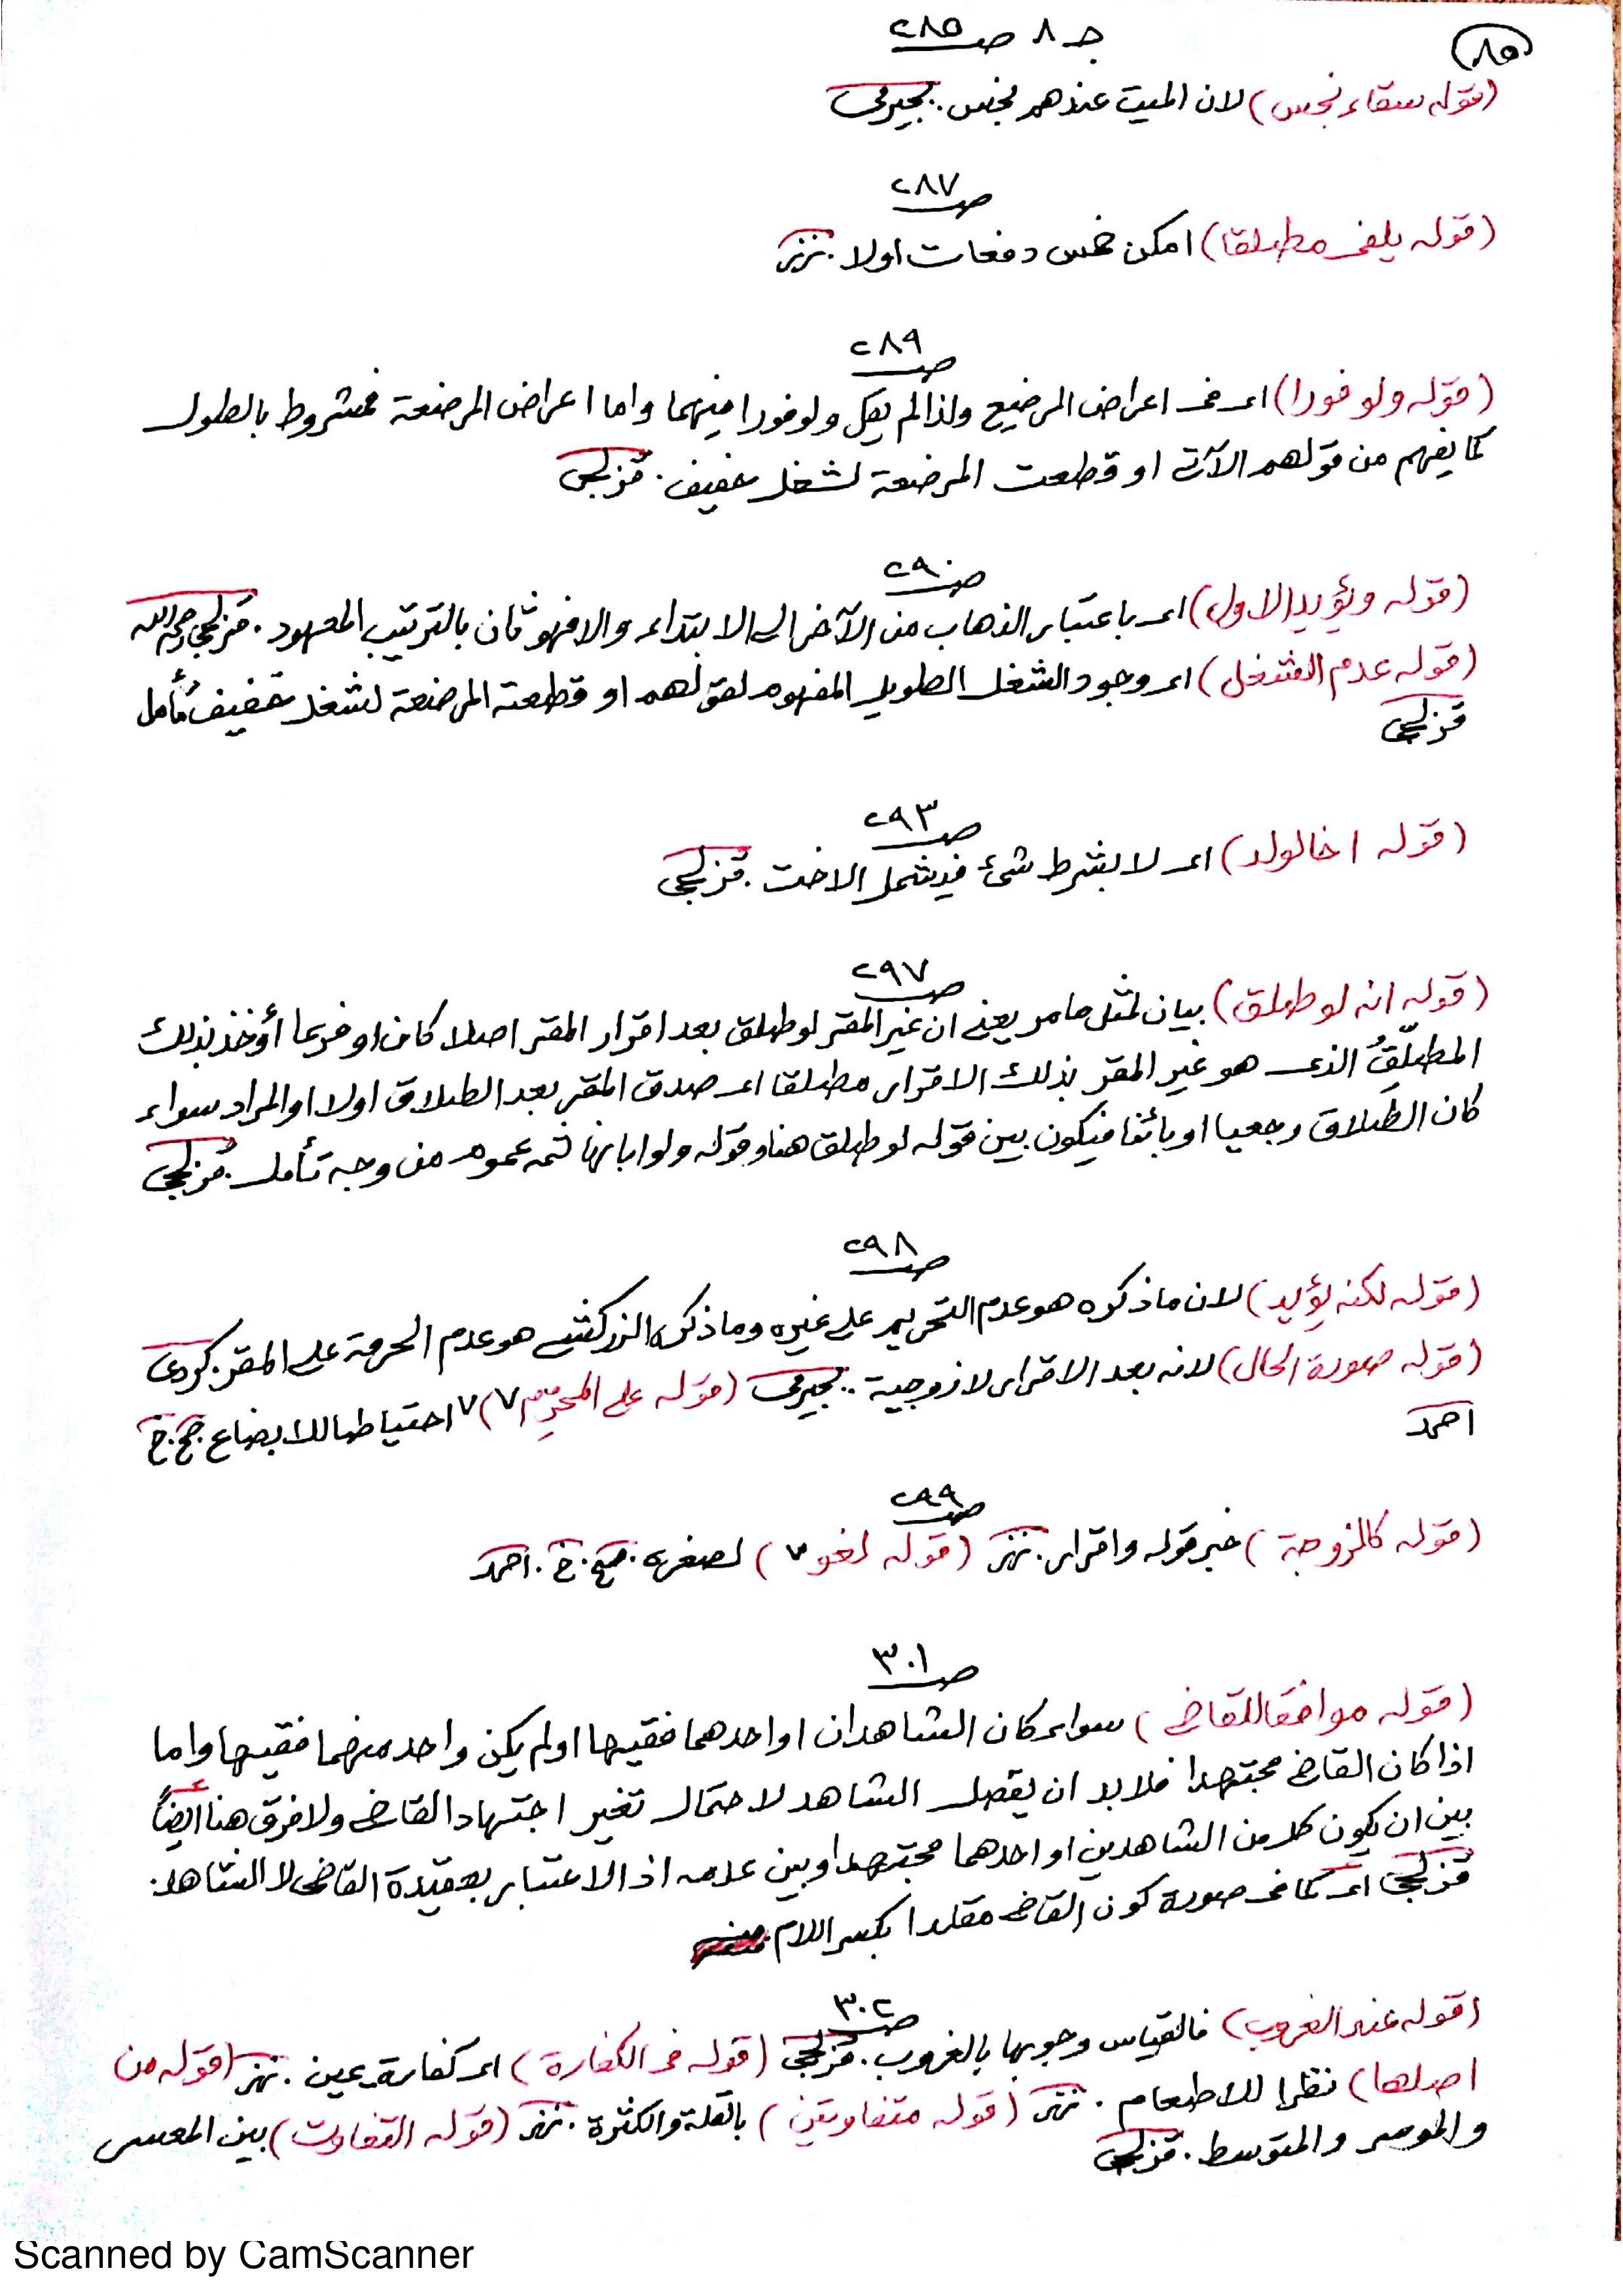 ٨٥
جـ ٨ صـ ٢٨٥
(قوله سقاء نجس) لان الميت عندهم نجس. بجيرمى
صـ ٢٨٧
(قوله يلغى مطلقا) امكن خمس دفعات اولا.
صـ ٢٨٩
(قوله ولو فورا) اى فى اعراض الرضيع ولذا لم يقل ولو فورا فيهما واما اعراض المرضعة فمشروط بالطول
كما يفهم من قولهم الآتى او قطعت المرضعة لشغل خفيف. قزلجى
صـ ٢٩٠
(قوله ويؤيد الاول) اى باعتبار الذهاب من الآخر الى الابتداء والا فهو ثان بالترتيب المعهود. قزلجى رحمه الله
(قوله عدم الشغل) اى وجود الشغل الطويل المفهوم لقولهم او قطعته المرضعة لشغل خفيف تأمل
قزلجى
صـ ٢٩٣
(قوله اخا لولد) اى لا بشرط شئ فيشمل الاخت. قزلجى
صـ ٢٩٧
(قوله انه لو طلق) بيان لمثل ما مر يعنى ان غير المقر لو طلق بعد اقرار المقر اصلا كان او فرعا أؤخذ بذلك
المطلّقُ الذى هو غير المقر بذلك الاقرار مطلقا اى صدق المقر بعد الطلاق اولا او المراد سواء
كان الطلاق رجعيا او بائنا فيكون بين قوله لو طلق هنا وقوله ولو ابانها ثمه عموم من وجه تأمل. قزلجى
صـ ٢٩٨
(قوله لكنه يؤيد) لان ما ذكره هو عدم التحريم على غيره وما ذكره الزركشى هو عدم الحرمة على المقر. كردى
(قوله صورة الحال) لانه بعد الاقرار لا زوجية. بجيرمى (قوله على المحرِّم ٧) ٧ احتياطا للابضاع صح. خ
احمد
صـ ٢٩٩
(قوله كالزوجة) خبر قوله واقرار. (قوله لغو ٧) لصغره. صح. خ. احمد
صـ ٣٠١
(قوله موافقا للقاضى) سواء كان الشاهدان او احدهما فقيها او لم يكن واحد منهما فقيها واما
اذا كان القاضى مجتهدا فلا بد ان يفصل الشاهد لاحتمال تغير اجتهاد القاضى ولا فرق هنا أيضاً
بين ان يكون كل من الشاهدين او احدهما مجتهدا وبين عدمه اذ الاعتبار بعقيدة القاضى لا الشاهد.
قزلجى اى كما فى صورة كون القاضى مقلدا بكسر اللام
صـ ٣٠٢
(قوله عند الغروب) فالقياس وجوبها بالغروب. قزلجى (قوله فى الكفارة) اى كفارة يمين. (قوله من
اصلها) نظرا للاطعام. (قوله متفاوتين) بالقلة والكثرة. (قوله التفاوت) بين المعسر
والموسر والمتوسط. قزلجى
Scanned by CamScanner